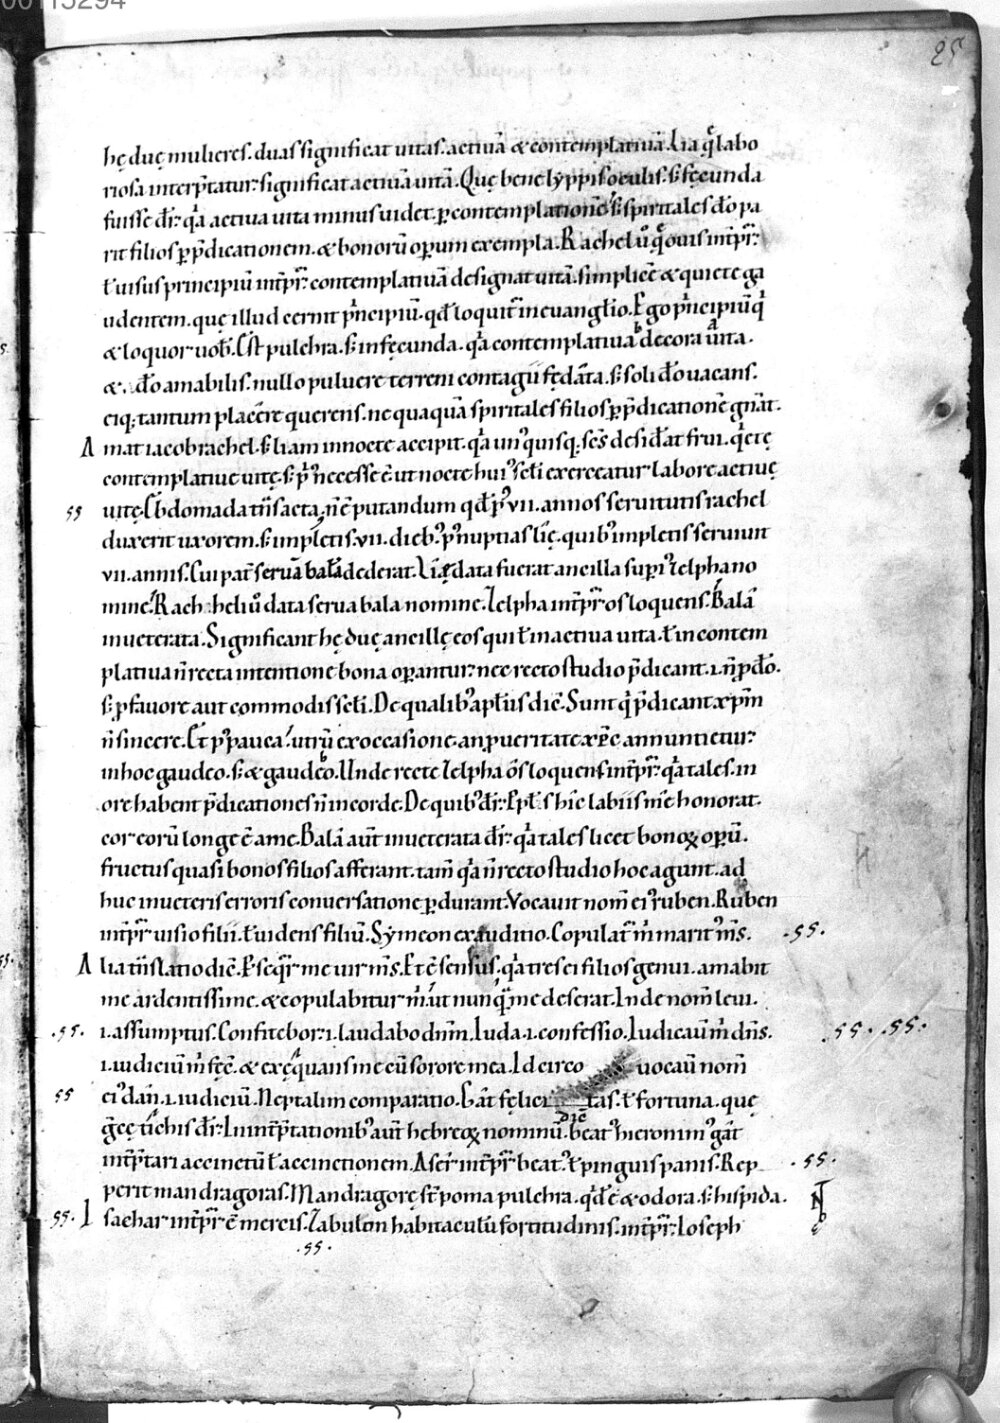 00115294
25
hę duę mulieres. duas significat uitas. actiuā & contēplatiuā. Lia q̄ labo
riosa interp̄tatur: significat actiuā uitā. Quę bene lyppis oculis. s; fęcunda
fuisse dr̄: q̄a actiua uita minus uidet. p contemplationē. s; spiritales dō pa
rit filios p p̄dicationem. & bonorū opum exempla. Rachel ū q̄ ouis int̄pr̄:
ł uisus principiū int̄pr̄: contemplatiuā designat uitā. simplicē & quiete ga
udentem. quę illud cernit p̄ncipiū. qđ loquit̄ in euanglio. Ego p̄ncipiū q̄
& loquor uob̄. Est pulchra. s; infęcunda. q̄a contemplatiua decora uita.
&. dō amabilis. nullo puluere terreni contagii fędāta. s; soli dō uacans.
eiq; tantum placēre querens. ne quaquā spiritales filios p p̄dicationē gn̄at.
A mat iacob rachel. s; liam in nocte accipit. q̄a un'quisq; sc̄s desiđat frui. q̄etę
contemplatiuę uitę. s; p' necesse ē. ut nocte hui' scłi exerceatur labore actiuę
55 uitę. Ebdomada tn̄ facta. n̄ ē putandum qđ p' vii. annos seruitutis rachel
duxerit uxorem. s; impletis. vii. dieb' p' nuptias lię. quib' impletis seruiuit
vii. annis. Cui pat̄ seruā balā dederat. Lię data fuerat ancilla supi' zelpha no
mine. Rachheli ū data serua bala nomine. Zelpha int̄pr̄ os loquens. Balā
inueterata. Significant hę duę ancillę eos qui ł in actiua uita. ł in contem
platiua n̄ recta intentione bona opantur: nec recto studio p̄dicant. .i. n̄ p dō.
s; p fauore aut commodis scłi. De qualib' apłus diē. Sunt q̄ p̄dicant xp̄m
n̄ sincere. Et p' pauca. utrū ex occasione. an p ueritate xp̄c annuntietur:
in hoc gaudeo. s; & gaudebo. Unde recte zelpha os loquens int̄pr̄: q̄a tales. in
ore habent p̄dicationes n̄ in corde. De quib' dr̄: Epłs hic labiis me honorat.
cor eorū longe ē a me. Balā aut̄ inueterata dr̄: q̄a tales licet bonoꝝ opū.
fructus quasi bonos filios afferant. tam̄ q̄a n̄ recto studio hoc agunt. ad
huc in ueteris erroris conuersatione pdurant. Vocauit nom̄ ei' ruben. Ruben
int̄pr̄ uisio filii. ł uidens filiū. Symeon exauditio. Copulat̄ m̄ marit' m̄s. .55.
A lia tn̄slatio diē. Pseq̄r me uir m̄s. Et ē sensus. q̄a tres ei filios genui. amabit
me ardentissime. & copulabitur m̄. ut nunq̄ me deserat. Inde nom̄ leui.
.55. .i. assumptus. Confitebor: .i. laudabo dnm̄. Iuda .i. confessio. Iudicau m̄ dn̄s. 55. .55.
.i. iudiciū m̄ fęc̄. & exęquans me cū sorore mea. Idcirco uocau nom̄
55 ei' dan. .i. iudiciū. Neptalim comparatio. Gāt felicitas. ł fortuna. quę
dic̄
gęc̄ tichis dr̄: In int̄p̄tationib' aut̄ hebreoꝝ nominū. beat' hieronim' gāt
int̄p̄tari accinctū ł accinctionem. Aser int̄pr̄ beat'. ł pinguis panis. Rep .55.
perit mandragoras. Mandragorę st̄ poma pulchra. qđ ē & odora. s; hispida.
55. I sachar int̄pr̄ ē merces. Zabulon habitaculū fortitudinis. int̄pr̄: Ioseph
.55.